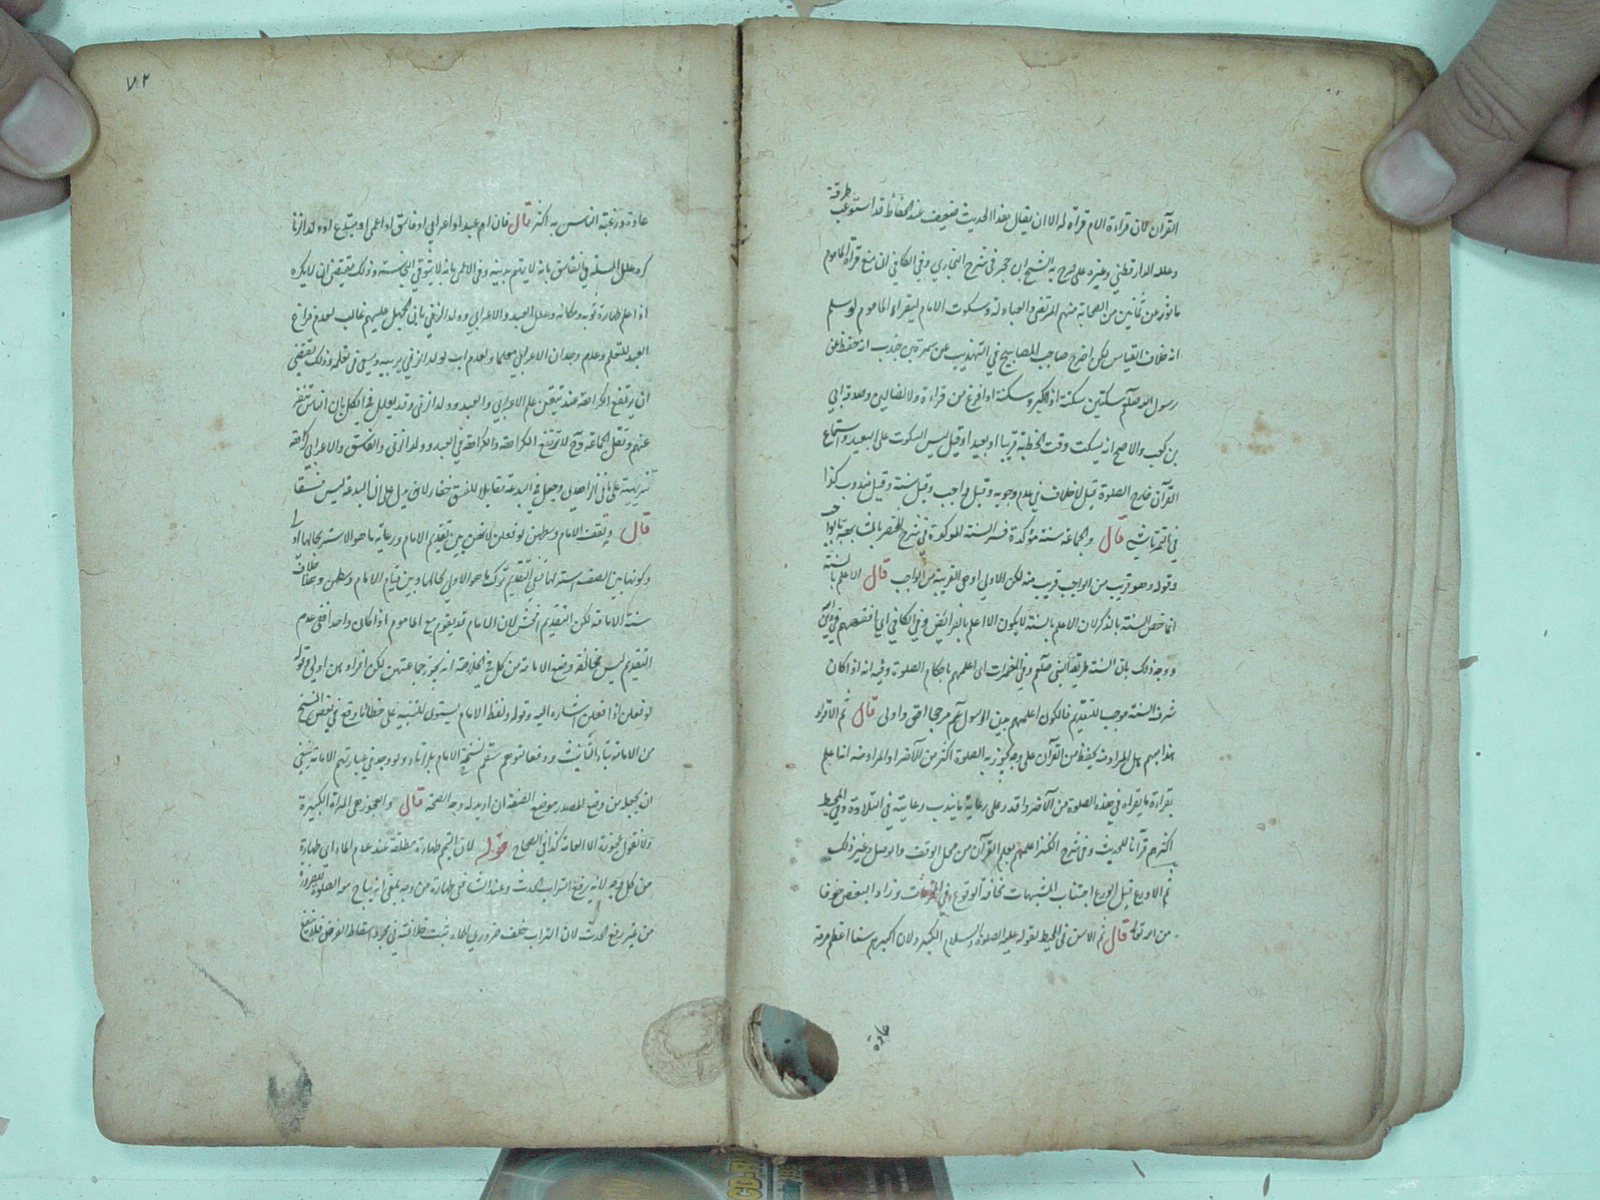 القرآن لان قراءة الامام قراءة له الا ان يقال هذا الحديث ضعيف عند الحفاظ قد استوعب طرقه
وعلله الدارقطني وغيره على ما صرح به الشيخ ابن حجر في شرح البخاري وفي الكافي لنا منع قراءة الماموم
ماثور عن ثمانين من الصحابة منهم المرتضى والعبادلة وسكوت الامام ليقراء الماموم لو سلم
انه خلاف القياس لكن اخرج صاحب المصابيح في التهذيب عن سمرة بن جندب انه حفظ عن
رسول الله صلعم سكتتين سكتة اذا كبر وسكتة اذا فرغ من قراءة ولا الضالين وصدقه ابي
بن كعب والاصح انه يسكت وقت الخطبة قريبا او بعيدا وقيل ليس السكوت على البعيد واستماع
القرآن خارج الصلوة قيل لا خلاف في عدم وجوبه وقيل واجب وقيل سنة وقيل مندوب كذا
في التمرتاشي قال والجماعة سنة مؤكدة فسر السنة المؤكدة في شرح المختصر
وقوله وهو قريب من الواجب قريب منه لكن الاولى اوهى القريبة من الواجب قال الاعلم بالسنة
انما خص السنة بالذكر لان الاعلم بالسنة لا يكون الا اعلم بالفرائض وفي الكافي اي افقههم في دين
ووجه ذلك بان السنة طريقة النبي صلعم وفي المضمرات اى اعلمهم باحكام الصلوة وفيه انه اذا كان
شرف السنة موجبا للتقديم فالكون اعلمهم بدين الرسول عم مرجحا احق واولى قال ثم الاقراء
هذا مبهم هل المراد منه يحفظ من القرآن على وجه يجوز به الصلوة اكثر من الآخر او المراد منه انه اعلم
بقراءة ما يقراء في هذه الصلوة من الآخر واقدر على رعاية ما يندب رعايته في التلاوة وفي المحيط
اكثرهم قرآنا للحديث وفي شرح الكنز اعلمهم بعلم القرآن من محل الوقف والوصل وغير ذلك
ثم الاورع قيل الورع اجتناب الشبهات مخافة الوقوع في المحرمات وزاد البعض خوفا
من الله تعالى قال ثم الاسن في المحيط لقوله عليه الصلوة والسلام الكبر ولان اكبرهم سنا اعظم حرمة
عادة
٧٢
عادة ورغبة الناس به اكثر قال فان ام عبد او اعرابي او فاسق او اعمى او مبتدع او ولد الزنا
كره علل المسئلة في الفاسق بانه لا يتهم بدينه وفي الاعمى بانه لا يتوقى النجاسة وذلك يقتضي ان لا يكره
اذا علم طهارة ثوبه ومكانه وعلل العبد والاعرابي وولد الزنى بان الجهل عليهم غالب لعدم فراغ
العبد للتعلم وعدم وجدان الاعرابي معلما ولعدم اب لولد الزنى يربيه ويسعى في تعلمه وذلك يقتضي
ان يرتفع الكراهة عند تيقن علم الاعرابي والعبد وولد الزنى وقد يعلل في الكل بان الناس تنفر
عنهم وتقل الجماعة وح لا ترتفع الكراهة والكراهة في العبد وولد الزنى والفاسق والاعرابي كراهة
تنزيهية على ما في الزاهدي وجعل في البدعة مقابلا للفسق خفاء لانه يدل على ان البدعة ليس فسقا
قال ويقف الامام وسطهن لو فعلن لانهن بين تقديم الامام ورعاية ما هو الاستر بحالها اولى
وكونها بين الصف استر لها ففي التقديم ترك ما هو الاولى بحالها وبين قيام الامام وسطهن وهذا خلاف
سنة الامامة لكن التقديم افحش لان الامام قد يقوم مع الماموم اذا كان واحدا ففي عدم
التقديم ليس مخالفة وضع الامامة من كل وجه في الخلاصة انه يجوز جماعتهن لكن انفرادهن اولى وقوله
لو فعلن اذا فعلن اشارة اليه وقوله ولفظ الامام يستوي للتنبيه على خطأ ما وقع في بعض النسخ
من الامامة بتاء التانيث ودفعا لتوهم سقم نسخة الامام بلا تاء ولو وجد في عباراتهم الامامة ينبغي
ان يجعل من وضع المصدر موضع الصفة ان اريد له وجه الصحة قال والعجوز هي المراة الكبيرة
ولا تقول عجوزة الا العامة كذا في الصحاح قوله لان التيمم طهارة مطلقة عند عدم الماء اى طهارة
من كل وجه لانه يرفع التراب الحدث وعند الشافعي طهارة من وجه بمعنى انه يباح معه الصلوة للضرورة
من غير رفع الحدث لان التراب خلف ضروري للماء ثبت خلافته في مجرد اسقاط الفرض